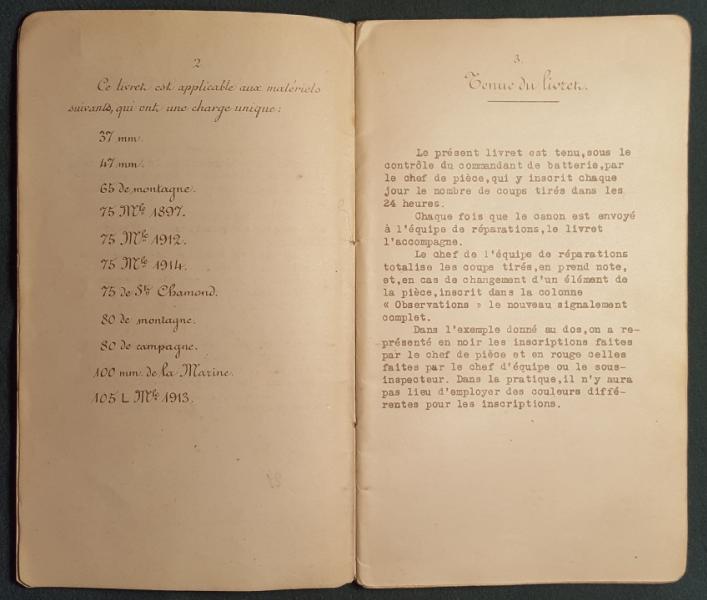 2
Ce livret est applicable aux matériels
suivants, qui ont une charge unique:
37 mm.
47 mm.
65 de montagne.
75 Mle 1897.
75 Mle 1912.
75 Mle 1914.
75 de St Chamond.
80 de montagne.
80 de campagne.
100 mm. de la Marine.
105 L Mle 1913.
3.
Tenue du livret.
Le présent livret est tenu,sous le
contrôle du commandant de batterie,par
le chef de pièce,qui y inscrit chaque
jour le nombre de coups tirés dans les
24 heures.
Chaque fois que le canon est envoyé
à l'équipe de réparations,le livret
l'accompagne.
Le chef de l'équipe de réparations
totalise les coups tirés,en prend note,
et,en cas de changement d'un élément de
la pièce,inscrit dans la colonne
« Observations » le nouveau signalement
complet.
Dans l'exemple donné au dos,on a re-
présenté en noir les inscriptions faites
par le chef de pièce et en rouge celles
faites par le chef d'équipe ou le sous-
inspecteur. Dans la pratique,il n'y aura
pas lieu d'employer des couleurs diffé-
rentes pour les inscriptions.